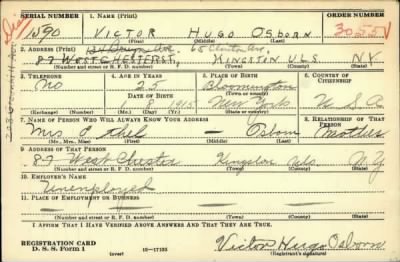 SERIAL NUMBER 1. NAME (Print) ORDER NUMBER
1590 VICTOR HUGO OSBORN
(First) (Middle) (Last)
2. ADDRESS (Print) 65 Clinton Ave.
87 WESTCHESTER ST. KINGSTON ULS. NY
(Number and street or R. F. D. number) (Town) (County) (State)
3. TELEPHONE 4. AGE IN YEARS 5. PLACE OF BIRTH 6. COUNTRY OF CITIZENSHIP
No 25 Bloomington
DATE OF BIRTH (Town or county)
8 1915 New York U.S.A.
(Exchange) (Number) (Mo.) (Day) (Yr.) (State or country)
7. NAME OF PERSON WHO WILL ALWAYS KNOW YOUR ADDRESS 8. RELATIONSHIP OF THAT PERSON
Mrs. Ethel — Osborn Mother
(Mr., Mrs., Miss) (First) (Middle) (Last)
9. ADDRESS OF THAT PERSON
87 West Chester Kingston Uls. N.Y
(Number and street or R. F. D. number) (Town) (County) (State)
10. EMPLOYER'S NAME
Unemployed
11. PLACE OF EMPLOYMENT OR BUSINESS
(Number and street or R. F. D. number) (Town) (County) (State)
I AFFIRM THAT I HAVE VERIFIED ABOVE ANSWERS AND THAT THEY ARE TRUE.
REGISTRATION CARD
D. S. S. Form 1 16—17105 Victor Hugo Osborn
(over) (Registrant's signature)